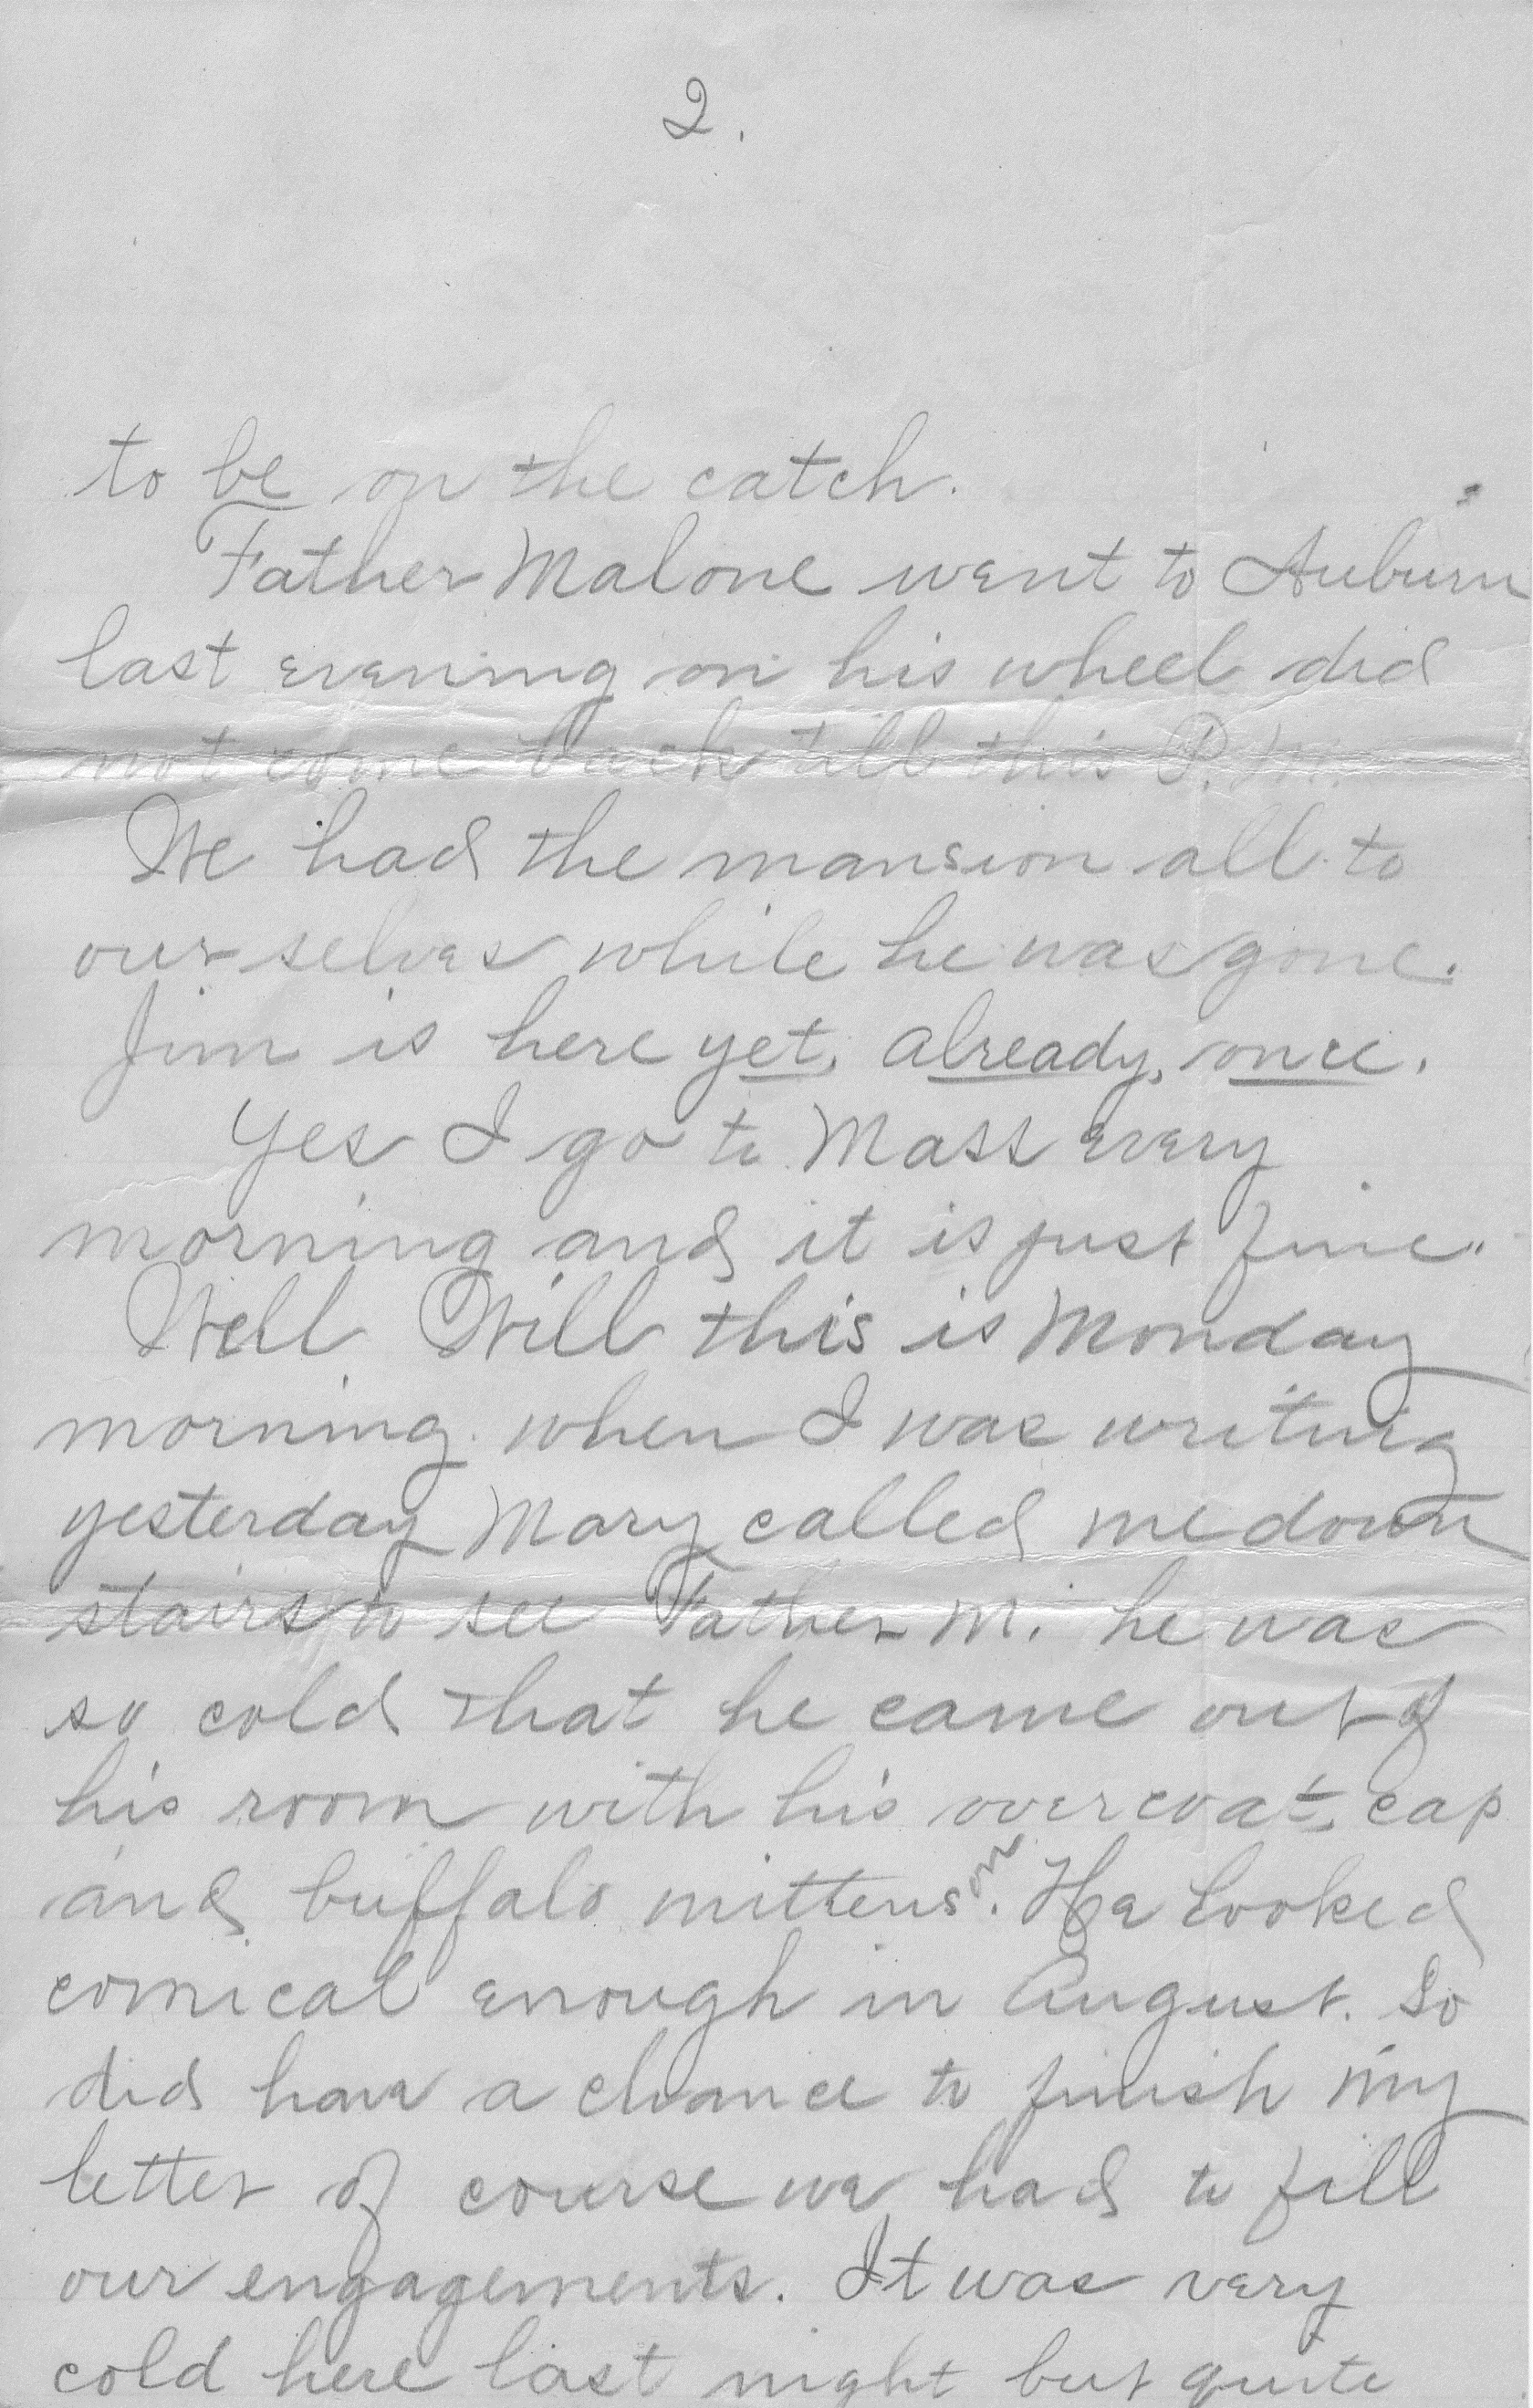 2.
to be on the catch.
Father Malone went to Auburn
last evening on his wheel did
not come back till this P.M.
We had the mansion all to
our selves while he was gone.
Jim is here yet, already, once.
Yes I go to Mass every
morning and it is just fine..
Well Will this is Monday
morning. when I was writing
yesterday Mary called me down
stairs to see Father M. he was
so cold that he came out of
his room with his overcoat, cap
and buffalo mittens on. He looked
comical enough in August. So
did have a chance to finish my
letter of course we had to fill
our engagements. It was very
cold here last night but quite